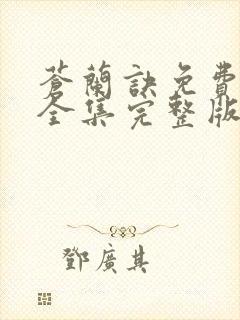 蒼蘭訣免費
全集完整版
鄧廣其